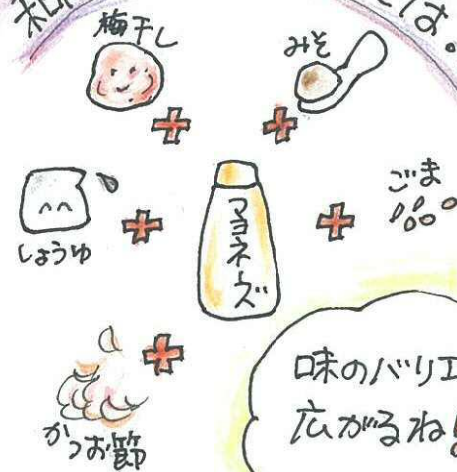 は。
梅干し
みそ
しょうゆ
マヨネーズ
ごま
かつお節
味のバリエ
広がるね!